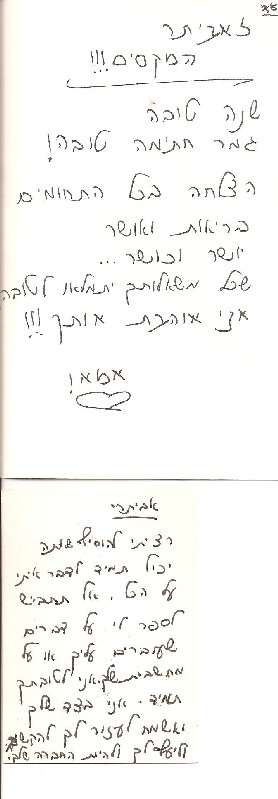 בס"ד
לאביתר
המקסים!!!
שנה טובה
גמר חתימה טובה!
הצלחה בכל התחומים
בריאות ואושר
יושר וכושר...
שכל משאלותיך יתמלאו לטובה
אני אוהבת אותך!!!
אמא!
אביתרי
רציתי להוסיף שאתה
יכול תמיד לדבר איתי
על הכל. אל תתבייש
לספר לי על דברים
שעוברים עליך או על
מחשבות שלך. אני לטובתך
תמיד. אני בצד שלך
ואשמח לעזור לך להקשיב
ולייעץ לך ולהיות החברה שלך.